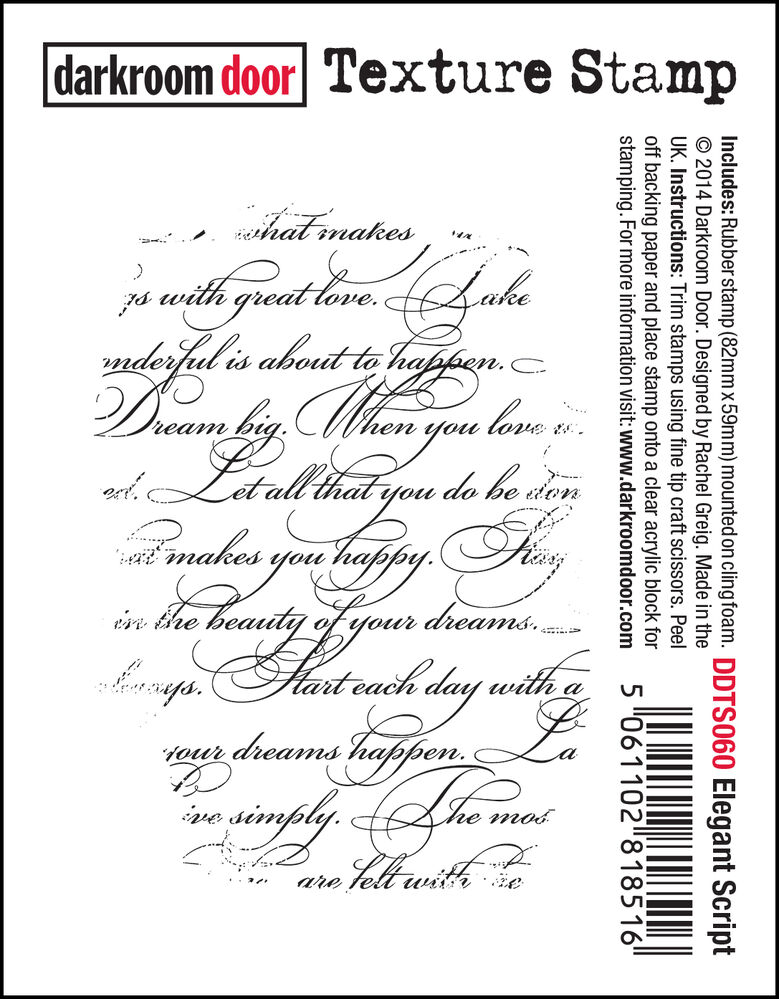 darkroom door Texture Stamp
what makes
gs with great love. Take
onderful is about to happen.
Dream big. When you love
ed. Let all that you do be don
at makes you happy. Stay
in the beauty of your dreams.
always. Start each day with a
your dreams happen. La
ive simply. The mos
are felt with he
Includes: Rubber stamp (82mm x 59mm) mounted on cling foam.
© 2014 Darkroom Door. Designed by Rachel Greig. Made in the
UK. Instructions: Trim stamps using fine tip craft scissors. Peel
off backing paper and place stamp onto a clear acrylic block for
stamping. For more information visit: www.darkroomdoor.com
DDTS060 Elegant Script
5 061102 818516